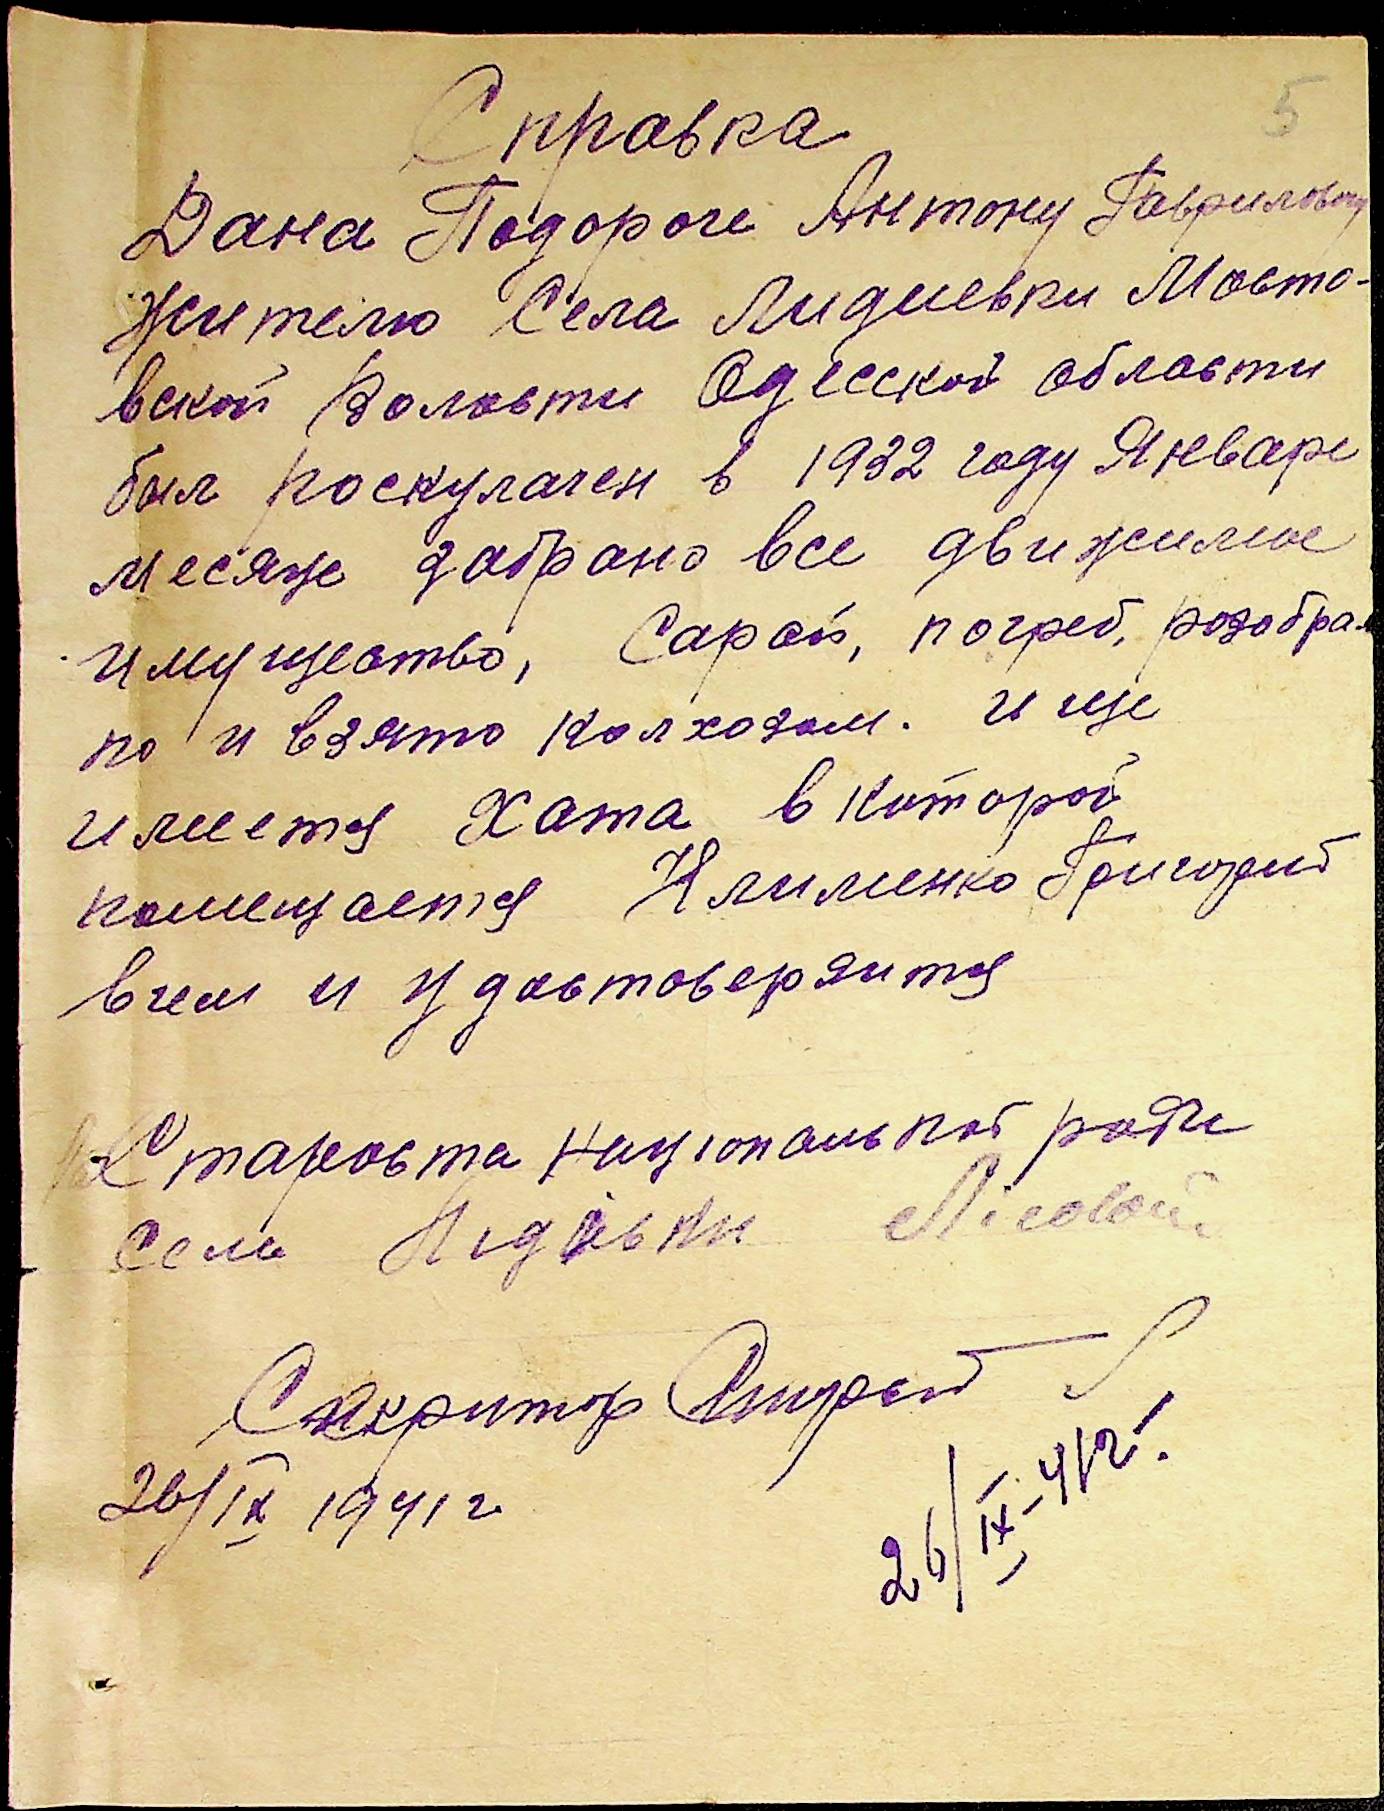 5
Справка
Дана Подороге Антону Гавриловичу
жителю Села Лидиевки Мосто-
вской Волости Одесской области
был роскулачен в 1932 году Январе
месяце забрано все движимое
имущество, Сарай, погреб, розобра
но и взято колхозом. и ще
имеется Хата в которой
помещается Клименко Григорий
вчем и удостоверяится
Староста национальной ради
села Лідіївки
Секритор
26/IX 1941 г
26/IX-41г.